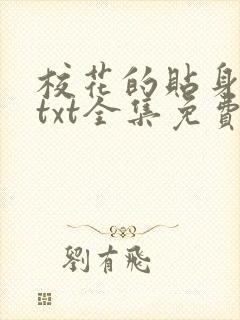 校花的貼身
txt全集免費
劉有飛